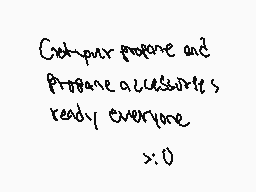 Get your propane and
propane accessories
ready everyone
>:O